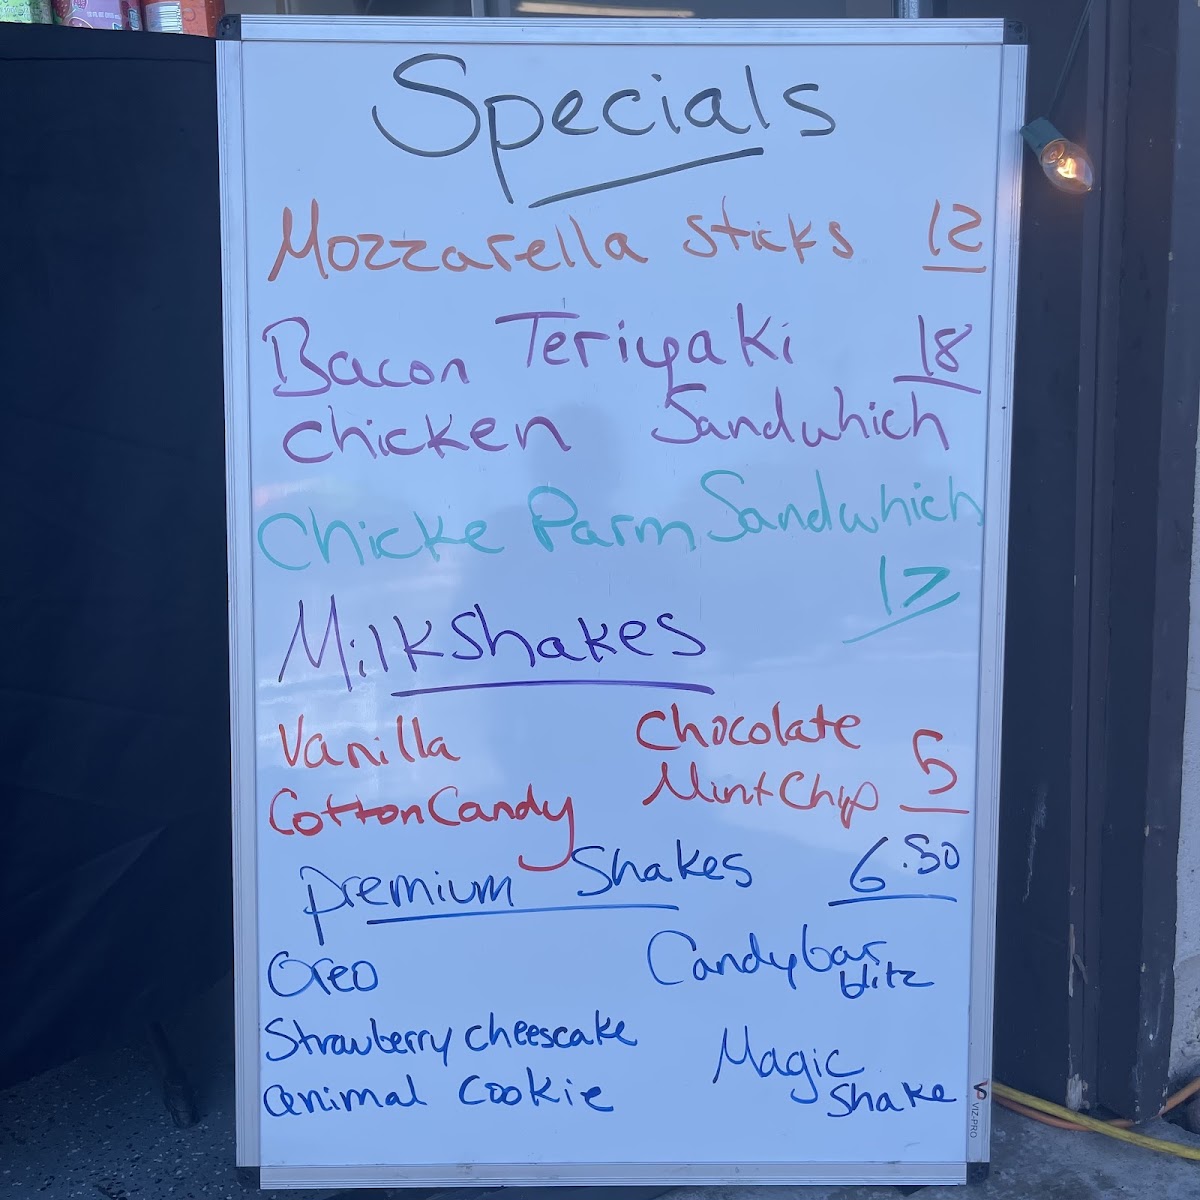 Specials
Mozzarella sticks 12
Bacon Teriyaki 18
chicken Sandwhich
Chicke Parm Sandwhich
17
Milkshakes
Vanilla Chocolate
Cotton Candy Mint Chip 5
Premium Shakes 6.50
Oreo Candybar
blitz
Strawberry cheescake Magic
animal cookie Shake
VIZ-PRO